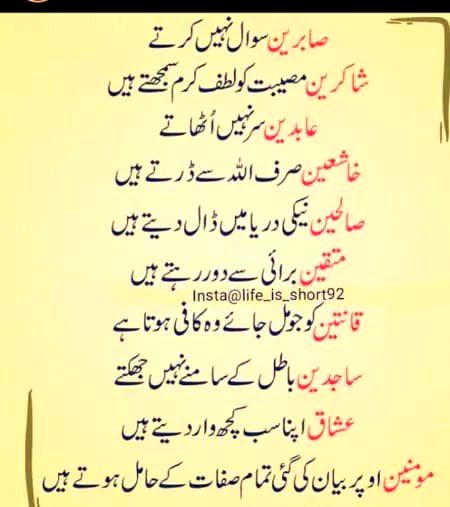 صابرین سوال نہیں کرتے
شاکرین مصیبت کو لطف کرم سمجھتے ہیں
عابدین سر نہیں اُٹھاتے
خاشعین صرف اللہ سے ڈرتے ہیں
صالحین نیکی دریا میں ڈال دیتے ہیں
متقین برائی سے دور رہتے ہیں
Insta@life_is_short92
قانتین کو جو مل جائے وہ کافی ہوتا ہے
ساجدین باطل کے سامنے نہیں جھکتے
عشاق اپنا سب کچھ وار دیتے ہیں
مومنین اوپر بیان کی گئی تمام صفات کے حامل ہوتے ہیں